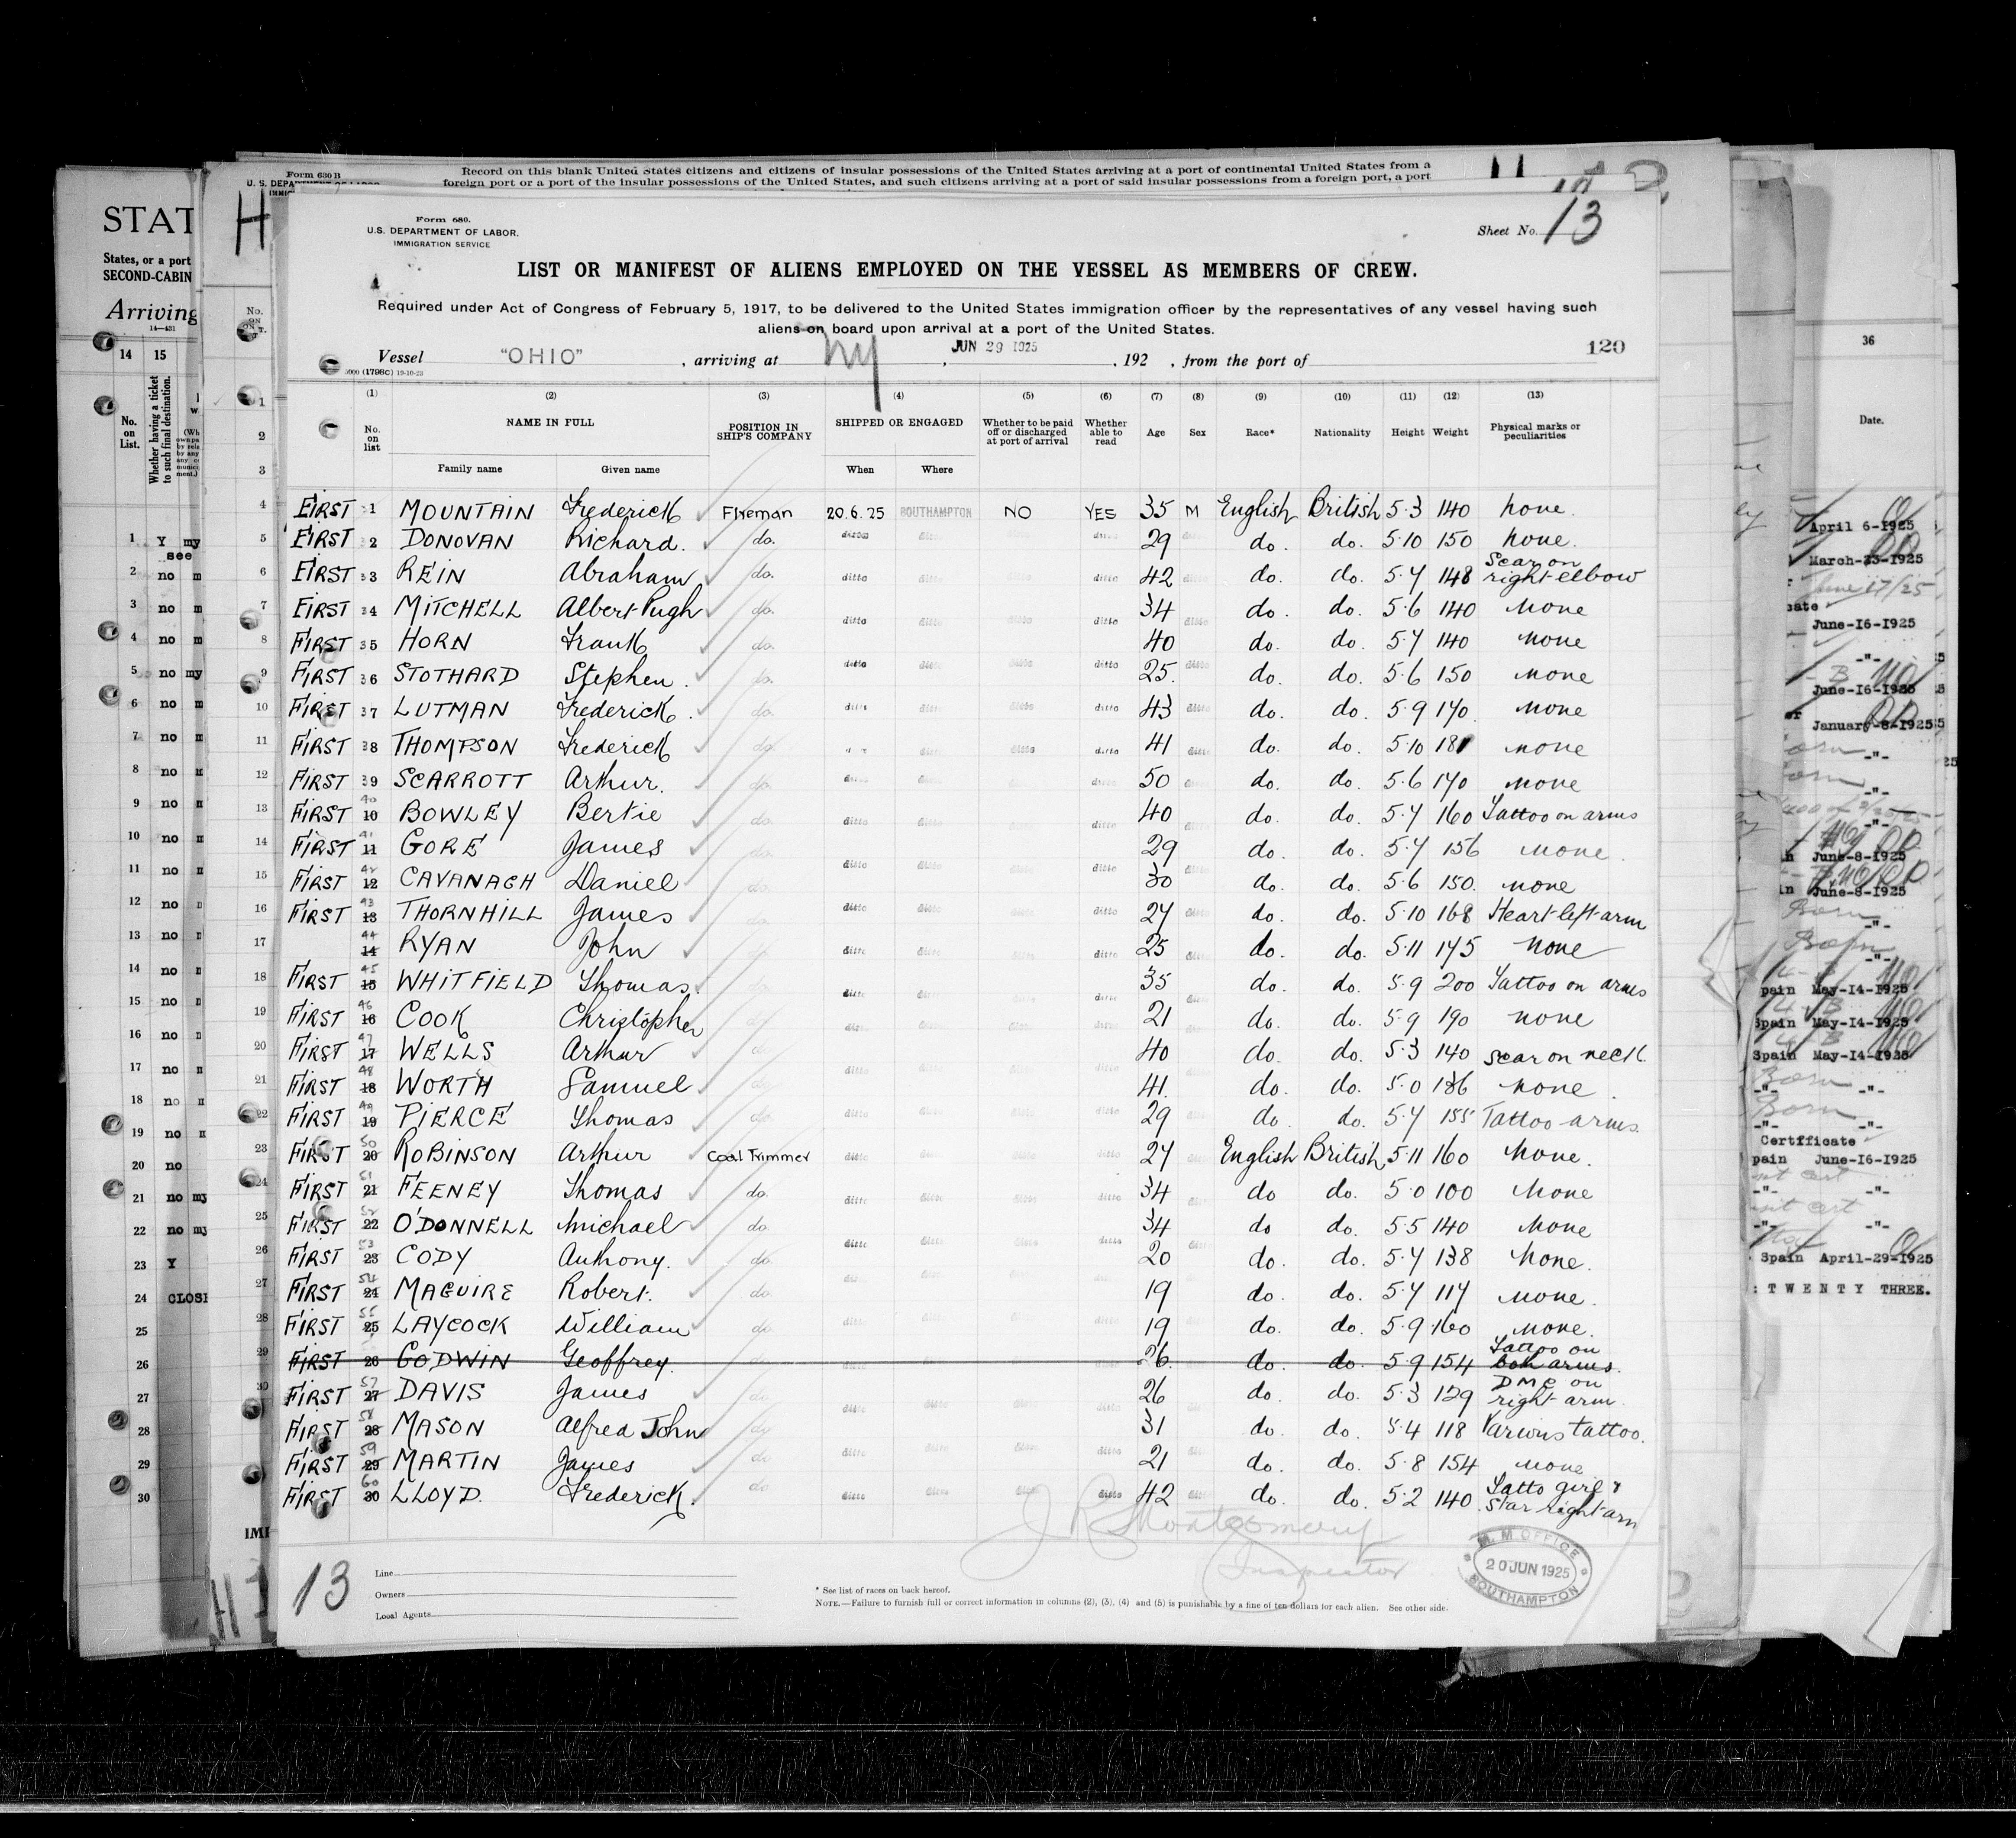 Form 630 B
U. S. DEPARTMENT OF LABOR
Record on this blank United States citizens and citizens of insular possessions of the United States arriving at a port of continental United States from a
foreign port or a port of the insular possessions of the United States, and such citizens arriving at a port of said insular possessions from a foreign port, a port
STAT
States, or a port
SECOND-CABIN
Arriving
14 15
No. on List.
Whether having a ticket to such final destination.
Form 680.
U.S. DEPARTMENT OF LABOR.
IMMIGRATION SERVICE
Sheet No. 13
LIST OR MANIFEST OF ALIENS EMPLOYED ON THE VESSEL AS MEMBERS OF CREW.
Required under Act of Congress of February 5, 1917, to be delivered to the United States immigration officer by the representatives of any vessel having such
aliens on board upon arrival at a port of the United States.
Vessel "OHIO", arriving at NY, JUN 29 1925, 192 , from the port of
120
(1) (2) (3) (4) (5) (6) (7) (8) (9) (10) (11) (12) (13)
No. on list NAME IN FULL POSITION IN SHIP'S COMPANY SHIPPED OR ENGAGED Whether to be paid off or discharged at port of arrival Whether able to read Age Sex Race* Nationality Height Weight Physical marks or peculiarities
Family name Given name When Where
FIRST 1 MOUNTAIN Frederick Fireman 20.6.25 SOUTHAMPTON NO YES 35 M English British 5·3 140 none.
FIRST 2 DONOVAN Richard. do. 29 do. do. 5·10 150 none.
FIRST 3 REIN Abraham do. ditto ditto ditto 42 do. do. 5·7 148 Scar on right elbow
FIRST 4 MITCHELL Albert Pugh do. ditto ditto ditto 34 do. do. 5·6 140 none
FIRST 5 HORN Frank do. 40 do. do. 5·7 140 none
FIRST 6 STOTHARD Stephen. do. ditto ditto ditto 25. do. do. 5·6 150 none
FIRST 7 LUTMAN Frederick. do. ditto ditto ditto 43 do. do. 5·9 170. none
FIRST 8 THOMPSON Frederick do. ditto ditto 41 do. do. 5·10 181 none
FIRST 9 SCARROTT Arthur. do. ditto ditto 50 do. do. 5·6 170 none
FIRST 40 10 BOWLEY Bertie do. ditto ditto ditto 40 do. do. 5·7 160 Tattoo on arms
FIRST 41 11 GORE James do. 29 do. do. 5·7 156 none.
FIRST 42 12 CAVANAGH Daniel do. ditto ditto ditto 30 do. do. 5·6 150. none
FIRST 43 13 THORNHILL James ditto ditto ditto 27 do. do. 5·10 168 Heart left arm
44 14 RYAN John ditto ditto ditto 25 do. do. 5·11 175 none
FIRST 45 15 WHITFIELD Thomas. ditto ditto ditto 35 do. do. 5·9 200 Tattoo on arms
FIRST 46 16 COOK Christopher ditto ditto ditto 21 do. do. 5·9 190 none
FIRST 47 17 WELLS Arthur ditto ditto ditto 40 do. do. 5·3 140 scar on neck.
FIRST 48 18 WORTH Samuel ditto ditto ditto 41. do. do. 5·0 136 none.
FIRST 49 19 PIERCE Thomas do. ditto ditto ditto 29 do. do. 5·7 155 Tattoo arms.
FIRST 50 20 ROBINSON Arthur Coal Trimmer ditto ditto ditto 27 English British 5·11 160 none.
FIRST 51 21 FEENEY Thomas do. ditto ditto ditto 34 do do. 5·0 100 none
FIRST 52 22 O'DONNELL Michael do. 34 do do. 5·5 140 none
FIRST 53 23 CODY Anthony. do. ditto ditto ditto 20 do. do. 5·7 138 none.
FIRST 54 24 MAGUIRE Robert. do. ditto ditto ditto 19 do. do. 5·7 117 none.
FIRST 55 25 LAYCOCK William do. ditto ditto ditto 19 do. do. 5·9 160 none.
FIRST 26 GODWIN Geoffrey. 26. do. do. 5·9 154 Tattoo on both arms.
FIRST 57 27 DAVIS James do. ditto ditto ditto 26 do. do. 5·3 129 DMC on right arm.
FIRST 58 28 MASON Alfred John do. ditto ditto ditto 31 do. do. 5·4 118 Various tattoo.
FIRST 59 29 MARTIN James do. ditto ditto ditto 21 do. do. 5·8 154 none
FIRST 60 30 LLOYD. Frederick. do. ditto ditto ditto 42 do. do. 5·2 140 Tatto girl & star right arm
J R Montgomery
Inspector
M. M. OFFICE
20 JUN 1925
SOUTHAMPTON
13
Line
Owners
Local Agents
* See list of races on back hereof.
NOTE.—Failure to furnish full or correct information in columns (2), (3), (4) and (5) is punishable by a fine of ten dollars for each alien. See other side.
36
Date.
April 6-1925
March-23-1925
June 17/25
June-16-1925
-"-
June-16-1925
January-8-1925
-"-
-"-
-"-
June-8-1925
June-8-1925
Born
-"-
Born
-"-
pain May-14-1925
Spain May-14-1925
Spain May-14-1925
Born
-"- -"-
Born
-"- -"-
Certificate
pain June-16-1925
-"- -"-
-"- -"-
Spain April-29-1925
: TWENTY THREE.